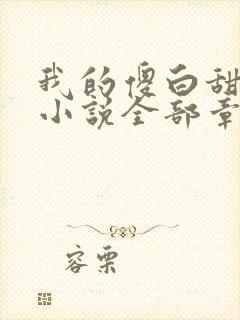 我的傻白甜
小说全部章
容栗